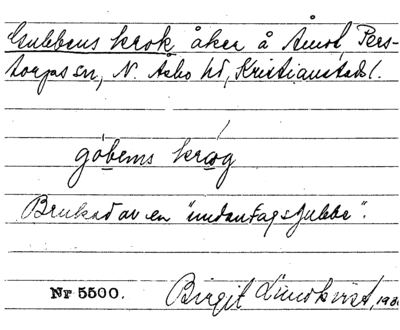 Gubbens krok åker å Åmot, Pers-
torps sn, N. Åsbo hd, Kristianstads l.
góbens kråg
Brukad av en "undantagsgubbe".
Nr 5500. Birgit Lindkvist, 193